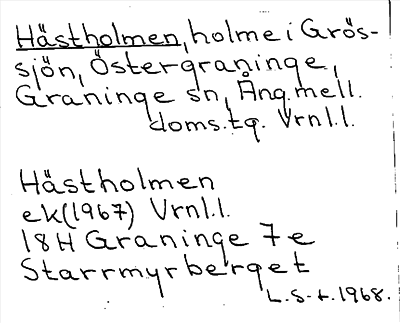 Hästholmen, holme i Grös-
sjön, Östergraninge,
Graninge sn, Ång.mell.
doms.tg. Vrnl.l.
Hästholmen
ek(1967) Vrnl.l.
18H Graninge 7e
Starrmyrberget
L.S-t.1968.